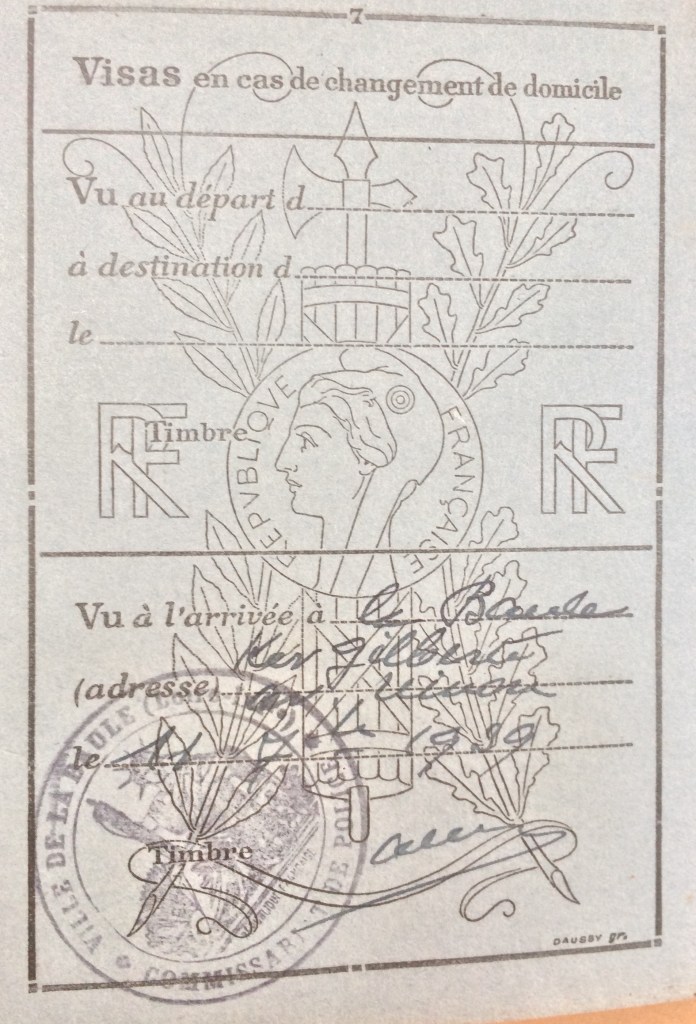 7
Visas en cas de changement de domicile
Vu au départ d
à destination d
le
RF
Timbre
RF
REPVBLIQVE FRANÇAISE
Vu à l'arrivée à la Baule
Ker Gilberte
(adresse)
le 11 1939
VILLE DE LA BAULE
COMMISSARIAT DE POLICE
Timbre
DAUSSY gr.